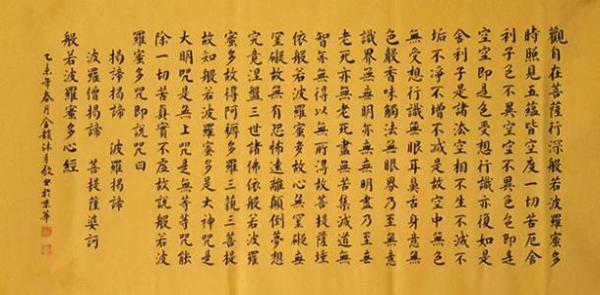 觀自在菩薩行深般若波羅蜜多
時照見五蘊皆空度一切苦厄舍
利子色不異空空不異色色即是
空空即是色受想行識亦復如是
舍利子是諸法空相不生不滅不
垢不淨不增不減是故空中無色
無受想行識無眼耳鼻舌身意無
色聲香味觸法無眼界乃至無意
識界無無明亦無無明盡乃至無
老死亦無老死盡無苦集滅道無
智亦無得以無所得故菩提薩埵
依般若波羅蜜多故心無罣礙無
罣礙故無有恐怖遠離顛倒夢想
究竟涅盤三世諸佛依般若波羅
蜜多故得阿耨多羅三藐三菩提
故知般若波羅蜜多是大神咒是
大明咒是無上咒是無等等咒能
除一切苦真實不虛故說般若波
羅蜜多咒即說咒曰
揭諦揭諦 波羅揭諦
波羅僧揭諦 菩提薩婆訶
般若波羅蜜多心經
乙未年春月金毅沐手敬書於京華